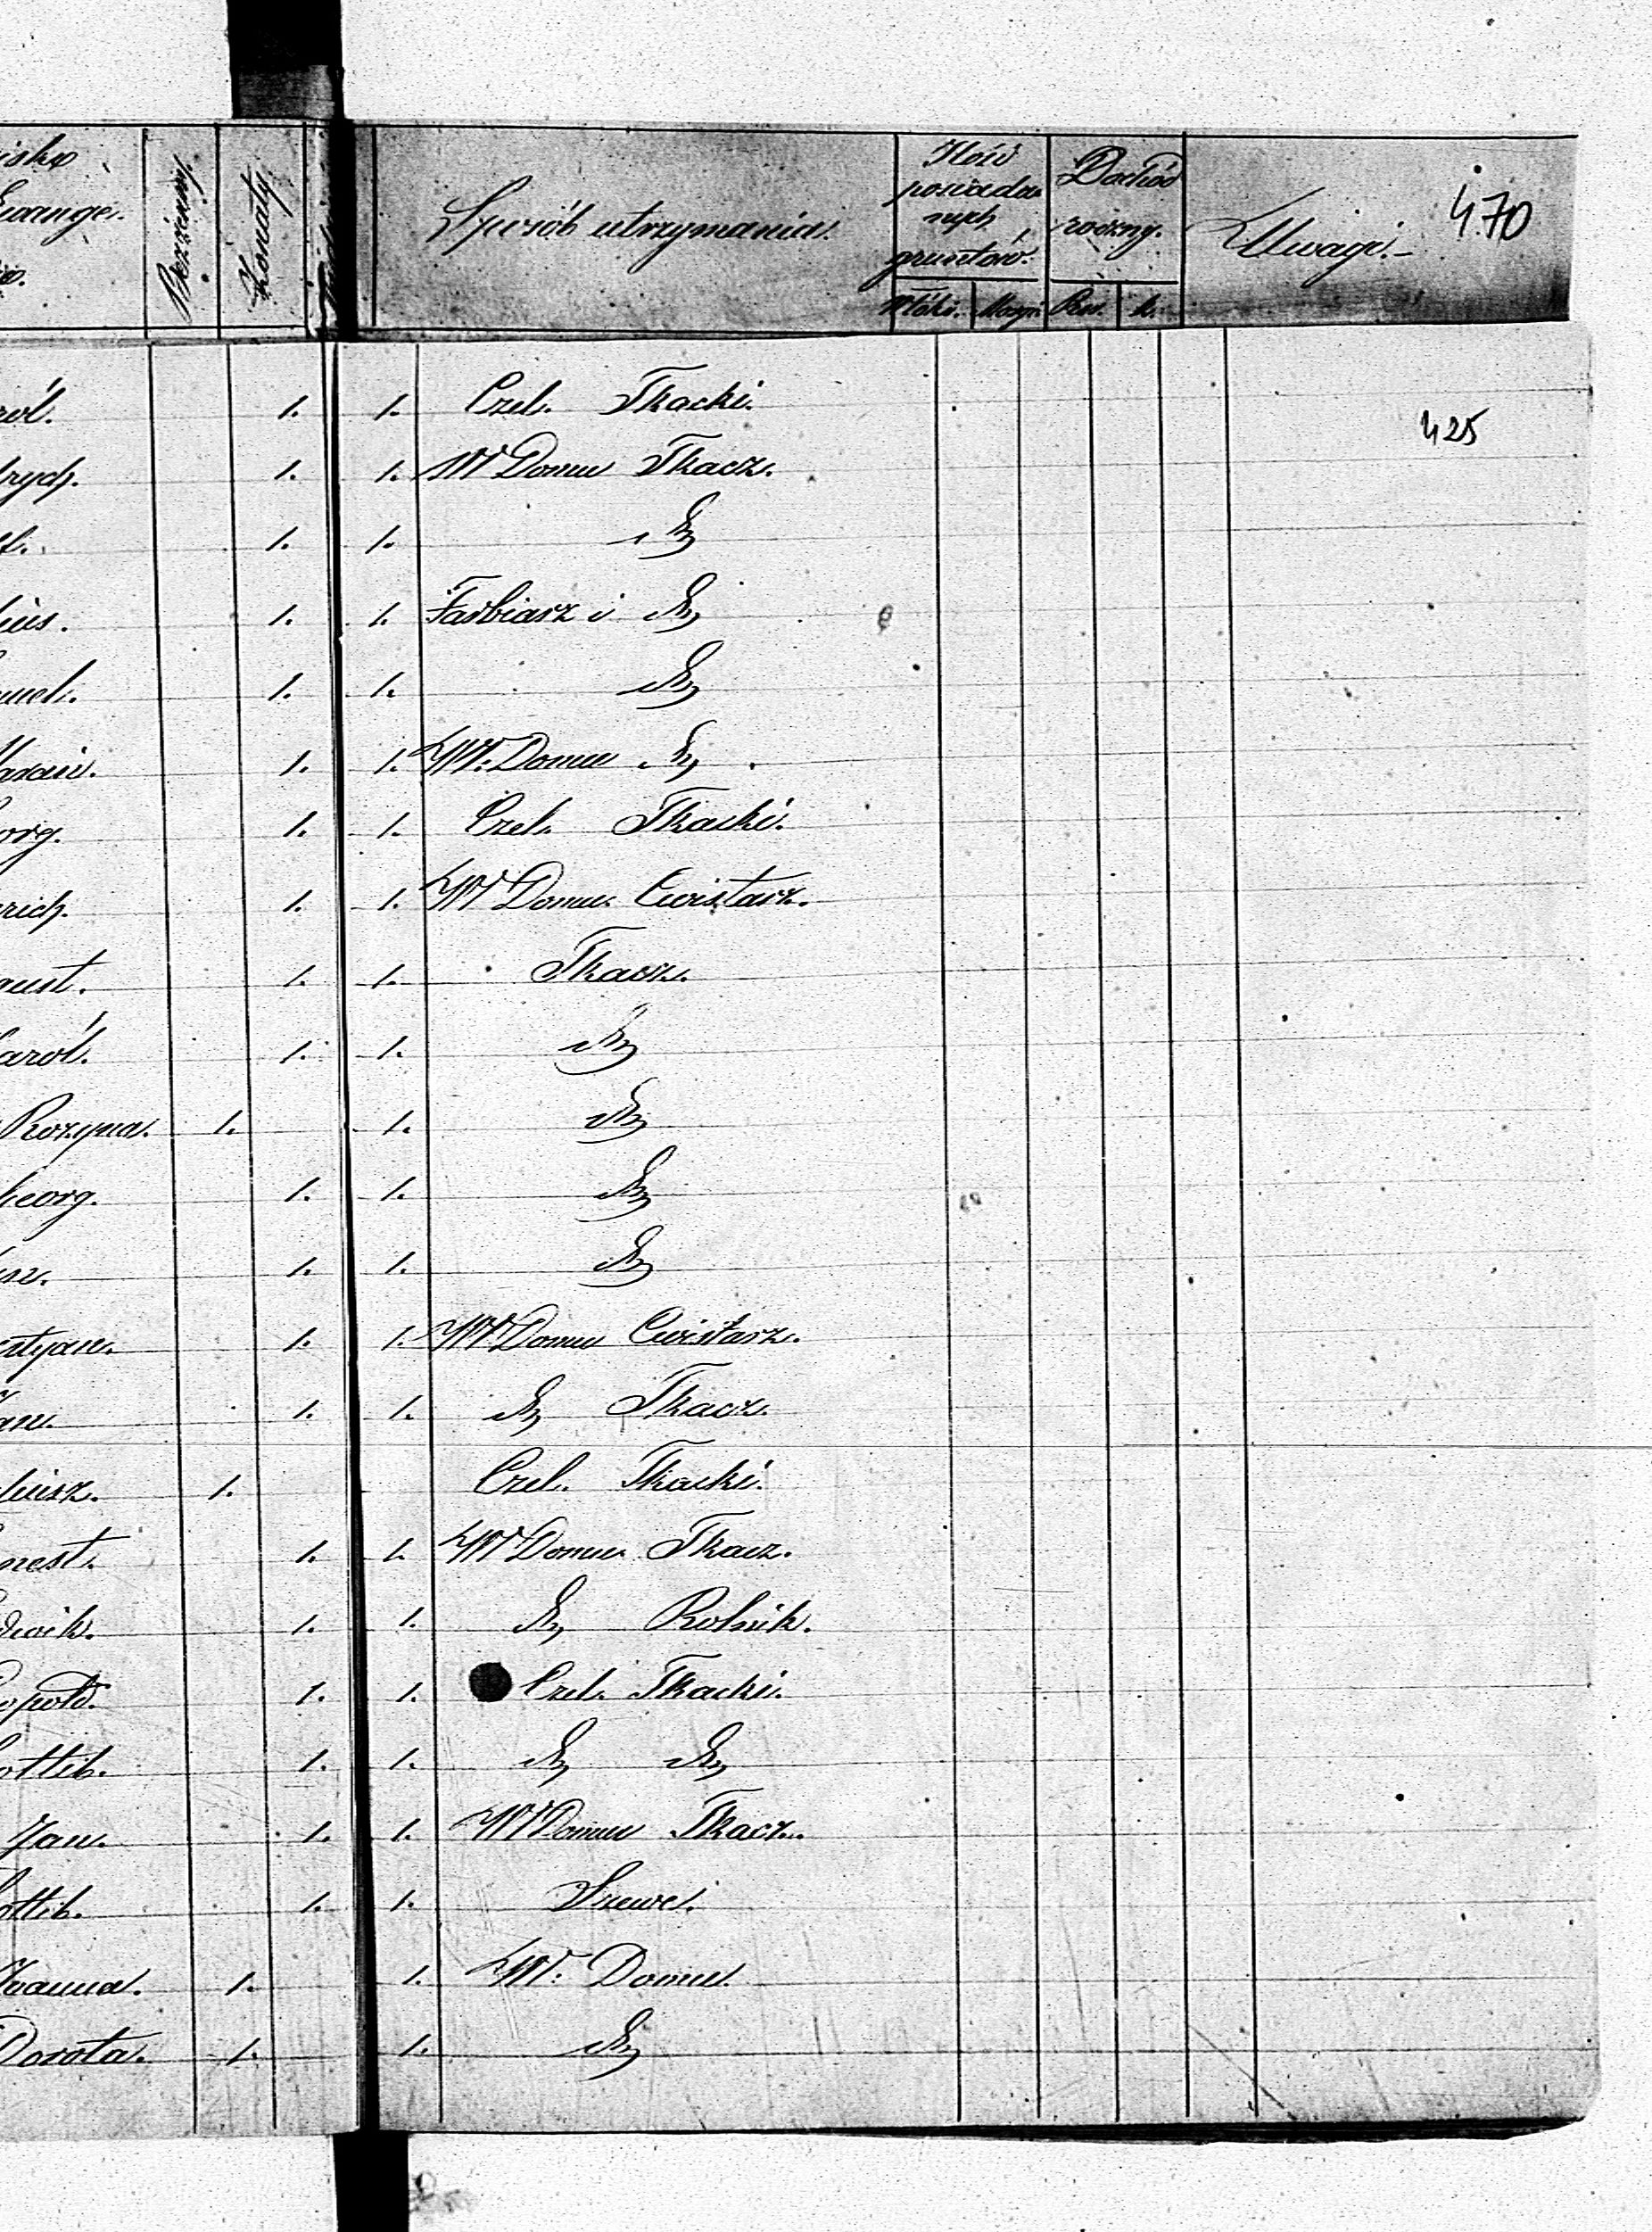 isko
Ewange.
Bezżenny.
Żonaty
Sposób utrzymania.
Ilość posiadanych gruntów.
Włóki. Morgi
Dochód roczny.
Rsr. k.
Uwagi.-
470
425
rol. 1. 1. Czel. Tkacki.
drych. 1. 1. W Domu Tkacz.
1. 1. dto
lius. 1. 1. Farbiarz i dto
muel. 1. 1. dto
1. 1. W. Domu dto
org. 1. 1. Czel. Tkacki.
erich. 1. 1. W Domu Cwistarz.
gust. 1. 1. Tkacz.
Karól. 1. 1. dto
Rozyna. 1. 1. dto
Georg. 1. 1. dto
1. 1. dto
styan. 1. 1. W Domu Cwistarz.
Jan. 1. 1. dto Tkacz.
liusz. 1. Czel. Tkacki.
rnest. 1. 1. W Domu Tkacz.
udwik. 1. 1. dto Rolnik.
eopold. 1. 1. Czel. Tkacki.
ottlib. 1. 1. dto dto
Jan. 1. 1. W Domu Tkacz.
ottlib. 1. 1. Szewc.
Joanna. 1. 1. W. Domu.
Dorota. 1. 1. dto